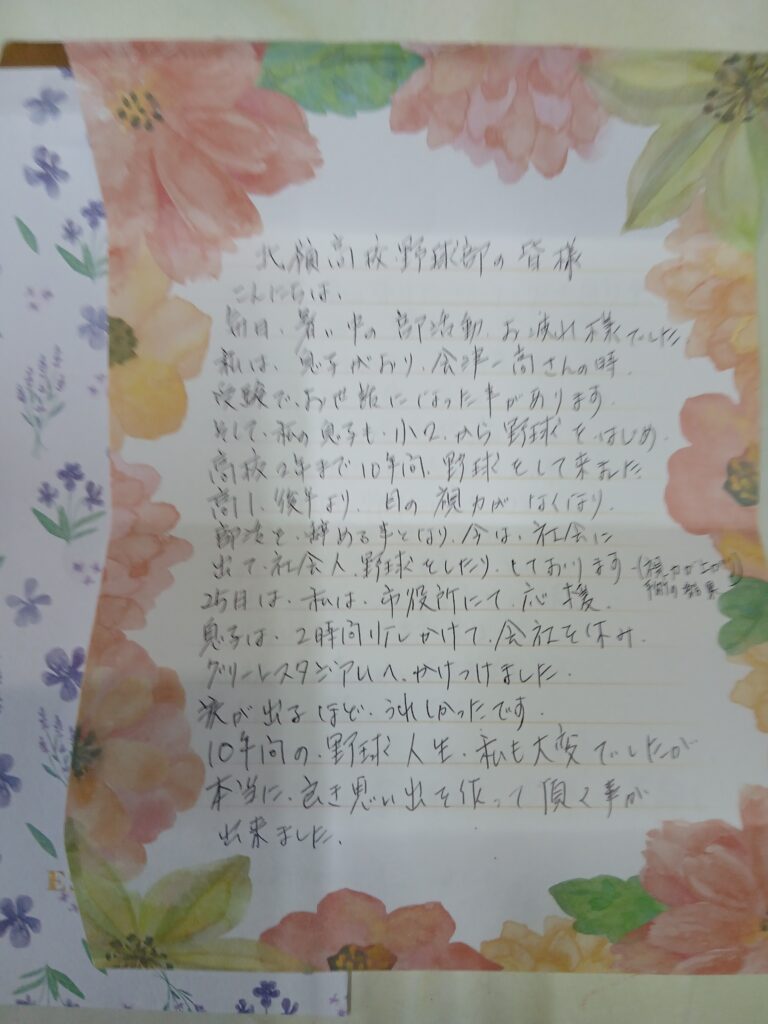 北嶺高校野球部の皆様
こんにちは、
毎日、暑い中の部活動、お疲れ様でした
私は、息子がおり、会津一高さんの時、
受験で、お世話になった事があります。
そして、私の息子も、小2、から野球をはじめ、
高校2年まで10年間、野球をして来ました
高1、後半より、目の視力がなくなり、
部活を、辞める事となり、今は、社会に
出て、社会人、野球をしたり、しております(視力が上がり
手術の結果)
25日は、私は、市役所にて、応援、
息子は、2時間かけて、会社を休み、
グリーンスタジアムへ、かけつけました。
涙が出るほど、うれしかったです。
10年間の、野球人生、私も大変でしたが
本当に、良き思い出を作って頂く事が
出来ました。
E